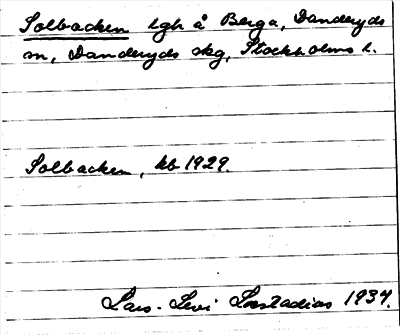 Solbacken lgh å Berga, Danderyds
sn, Danderyds skg, Stockholms l.
Solbacken, kb 1929.
Lars-Levi Læstadius 1934.